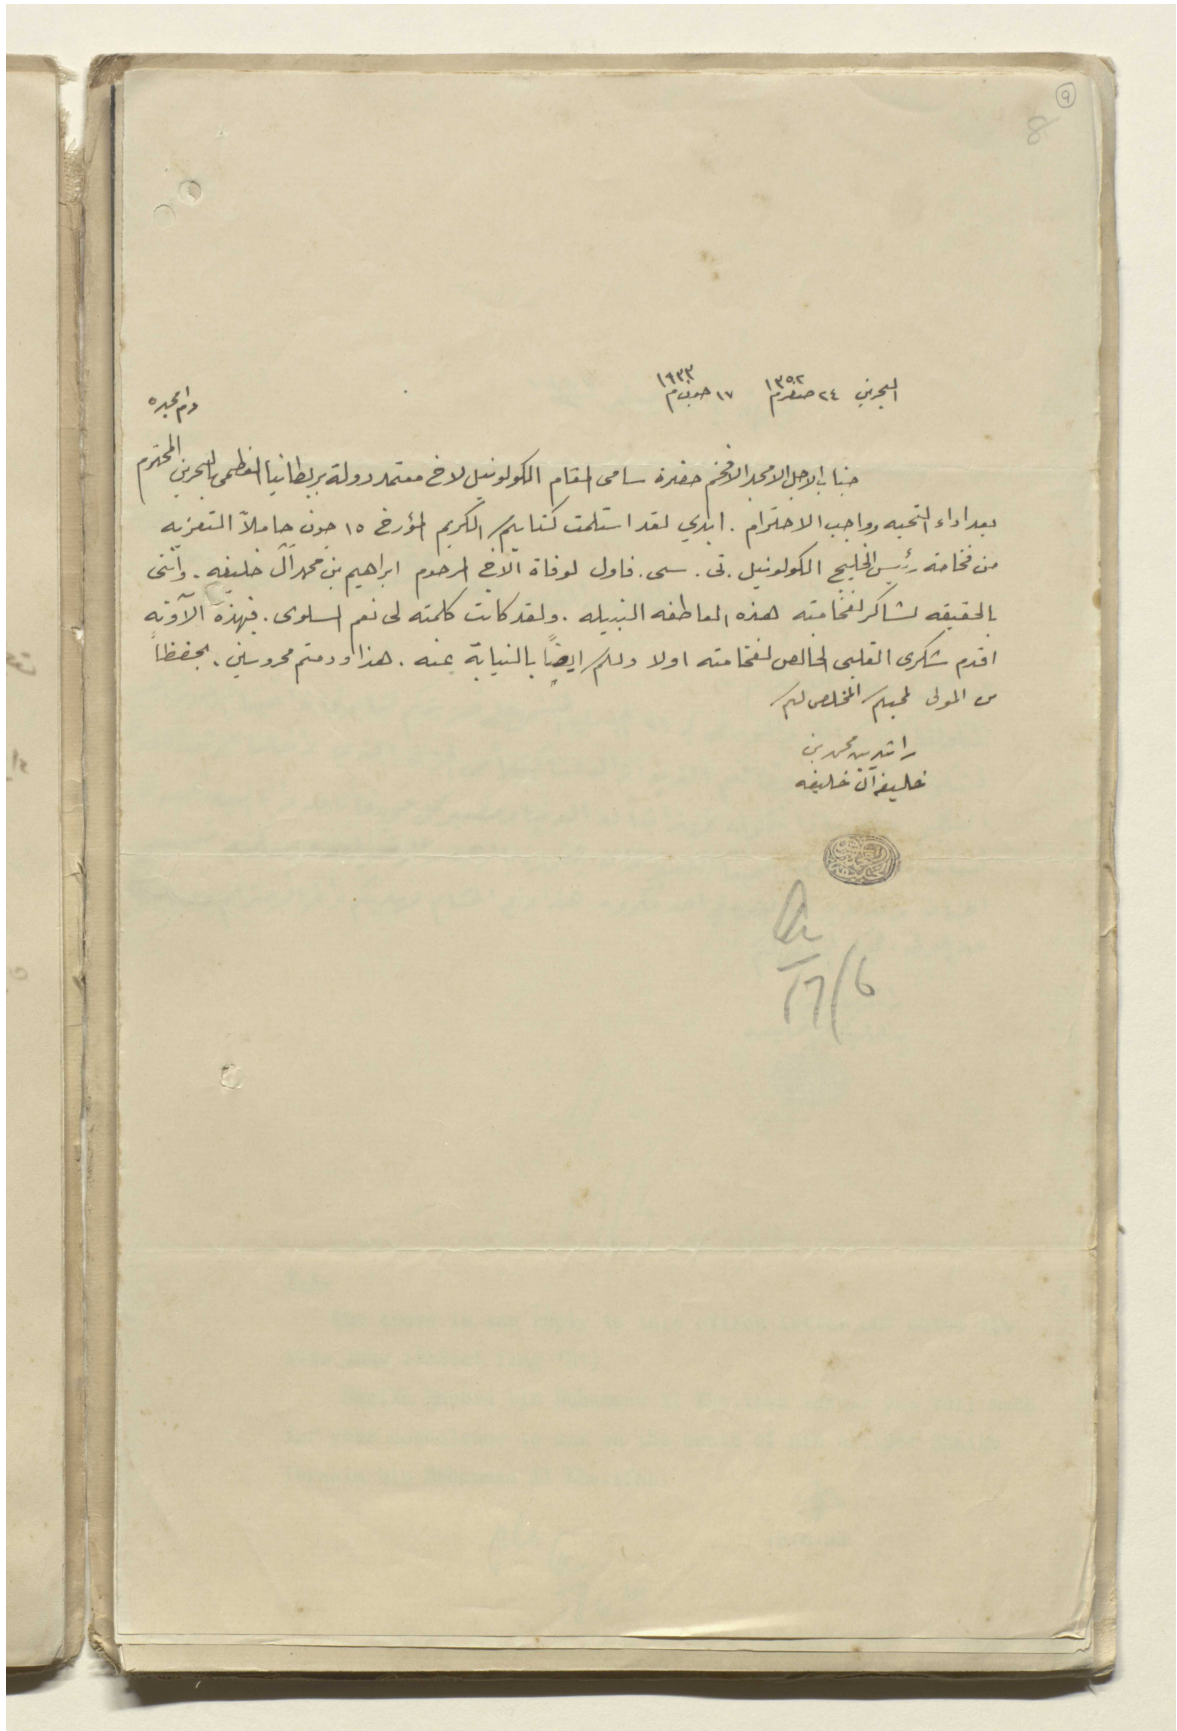 ٩
8
البحرين ٢٤ صفر ١٣٥٢ ١٧ جون ١٩٣٣م
دام مجده
جناب الاجل الامجد الافخم حضرة سامى المقام الكولونيل لاخ معتمد دولة بريطانيا العظمى بالبحرين المحترم
بعد اداء التحيه وواجب الاحترام . ابدي لقد استلمت كتابكم الكريم المؤرخ ١٥ جون حاملاً التعزيه
من فخامة رئيس الخليج الكولونيل . تى . سى . فاول لوفاة الاخ المرحوم ابراهيم بن محمد آل خليفه . وأننى
بالحقيقه لشاكر لفخامته هذه العاطفه النبيله . ولقد كانت كلمته لى نعم السلوى . فبهذة الآونه
اقدم شكرى القلبى الخالص لفخامته اولا ولكم ايضاً بالنيابة عنه . هذا ودمتم محروسين . بحفظاً
من المولى لمحبكم المخلص لكم
راشد بن محمد بن
خليفه آل خليفه
17/6